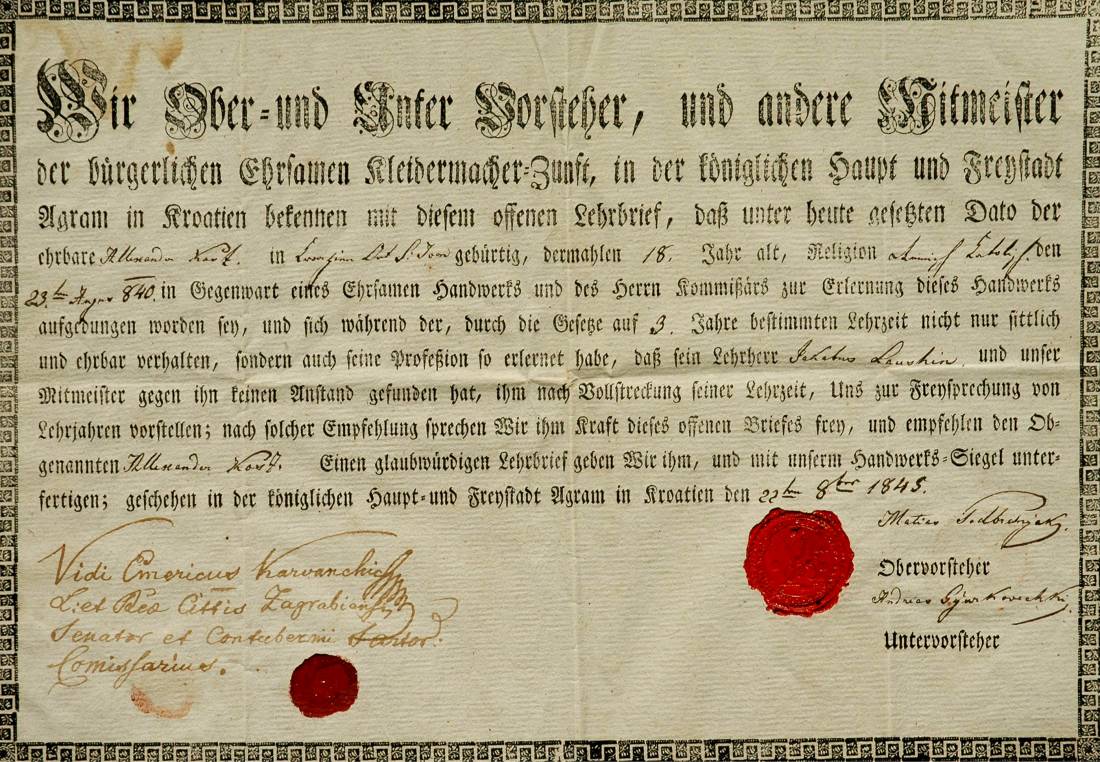 Wir Ober-und Unter Vorsteher, und andere Mitmeister
der bürgerlichen Ehrsamen Kleidermacher-Zunft, in der königlichen Haupt und Freystadt
Agram in Kroatien bekennen mit diesem offenen Lehrbrief, daß unter heute gesetzten Dato der
ehrbare Allexander in gebürtig, dermahlen 18. Jahr alt, Religion den
23. 840. in Gegenwart eines Ehrsamen Handwerks und des Herrn Kommißärs zur Erlernung dieses Handwerks
aufgedungen worden sey, und sich während der, durch die Gesetze auf 3. Jahre bestimmten Lehrzeit nicht nur sittlich
und ehrbar verhalten, sondern auch seine Profeßion so erlernet habe, daß sein Lehrherr und unser
Mitmeister gegen ihn keinen Anstand gefunden hat, ihm nach Vollstreckung seiner Lehrzeit, Uns zur Freysprechung von
Lehrjahren vorstellen; nach solcher Empfehlung sprechen Wir ihm Kraft dieses offenen Briefes frey, und empfehlen den Ob-
genannten Allexander Einen glaubwürdigen Lehrbrief geben Wir ihm, und mit unserm Handwerks-Siegel unter-
fertigen; geschehen in der königlichen Haupt-und Freystadt Agram in Kroatien den 22ten 8ber 1845.
Vidi Emericus
Zagrabiensis
Senator et Contubernii
Comissarius.
Obervorsteher
Andreas
Untervorsteher